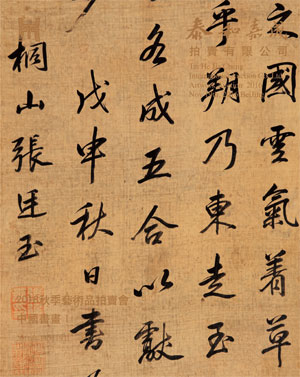 之國雲氣着草
乎翔乃東走玉
各成五合以獻
戊申秋日書
桐山張廷玉
拍賣有限公司
2018秋季藝術品拍賣會
中國書畫